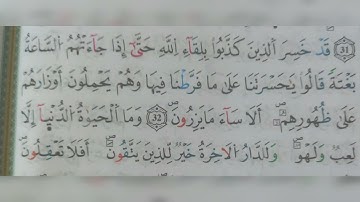 31 قَدْ خَسِرَ ٱلَّذِينَ كَذَّبُوا۟ بِلِقَآءِ ٱللَّهِ حَتَّىٰٓ إِذَا جَآءَتْهُمُ ٱلسَّاعَةُ
بَغْتَةً قَالُوا۟ يَٰحَسْرَتَنَا عَلَىٰ مَا فَرَّطْنَا فِيهَا وَهُمْ يَحْمِلُونَ أَوْزَارَهُمْ
عَلَىٰ ظُهُورِهِمْۖ أَلَا سَآءَ مَا يَزِرُونَ 32 وَمَا ٱلْحَيَوٰةُ ٱلدُّنْيَآ إِلَّا
لَعِبٌ وَلَهْوٌۖ وَلَلدَّارُ ٱلْءَاخِرَةُ خَيْرٌ لِّلَّذِينَ يَتَّقُونَۖ أَفَلَا تَعْقِلُونَ